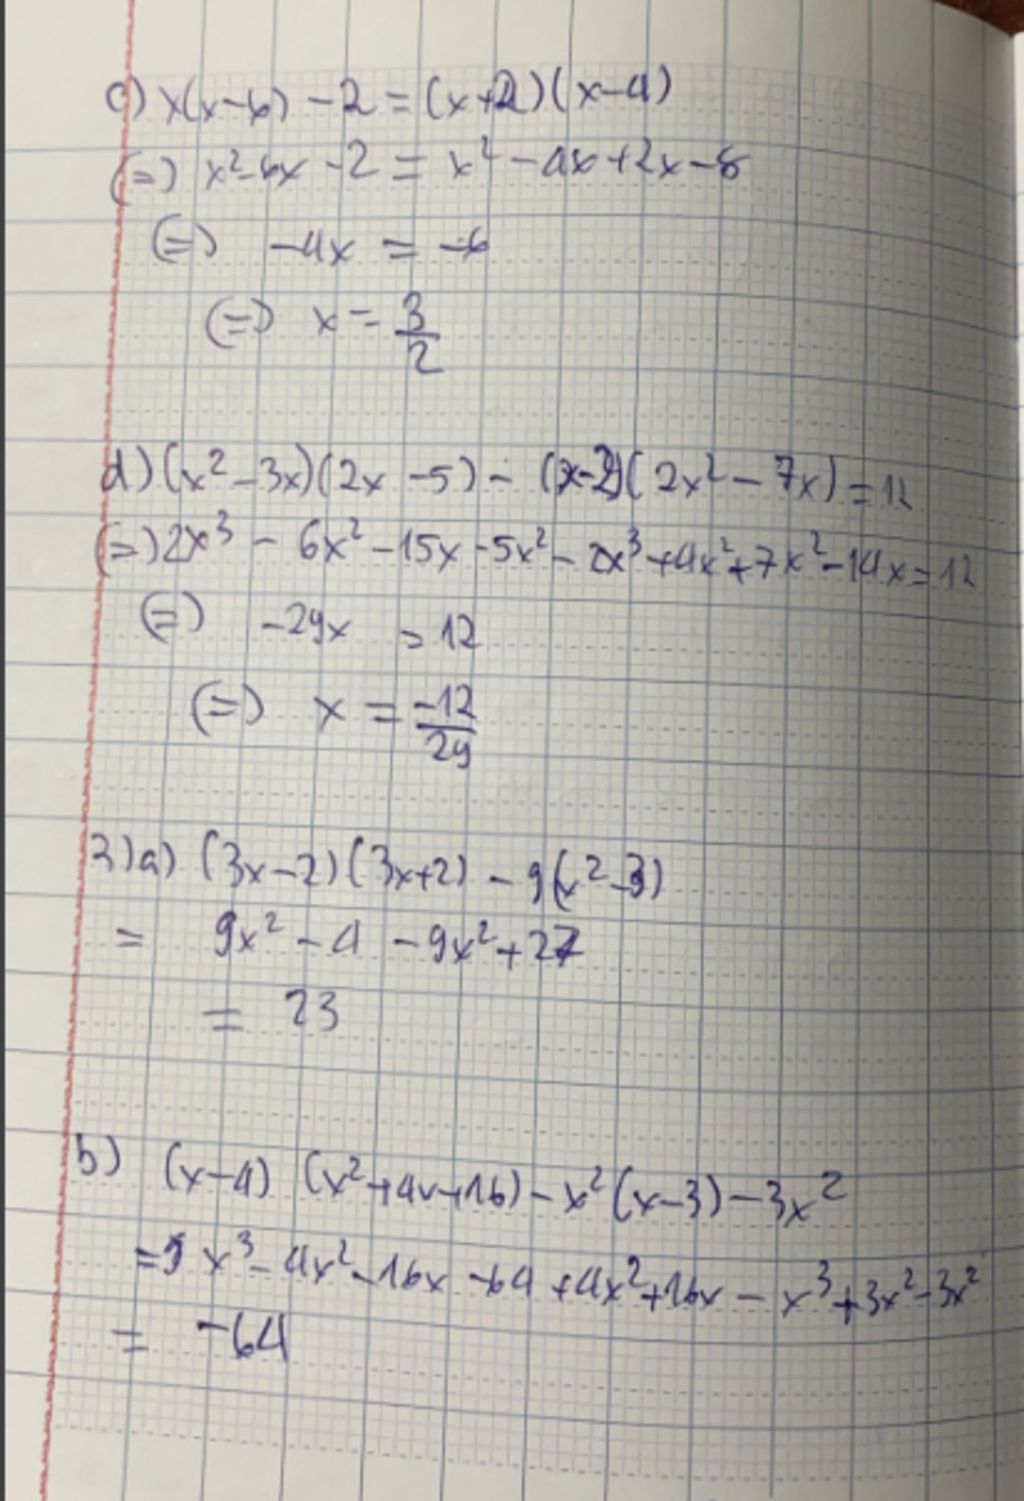 c) x(x-6) - 2 = (x+2)(x-4)
(=) x²-6x - 2 = x² - 4x + 2x - 8
(=) -4x = -6
(=) x = 3/2
d) (x² - 3x)(2x - 5) - (x-2)(2x² - 7x) = 12
(=) 2x³ - 6x² - 15x - 5x² - 2x³ + 4x² + 7x² - 14x = 12
(=) -29x = 12
(=) x = -12/29
3) a) (3x-2)(3x+2) - 9(x²-3)
= 9x² - 4 - 9x² + 27
= 23
b) (x-4) (x²+4x+16) - x²(x-3) - 3x²
= x³ - 4x² - 16x - 64 + 4x² + 16x - x³ + 3x² - 3x²
= -64